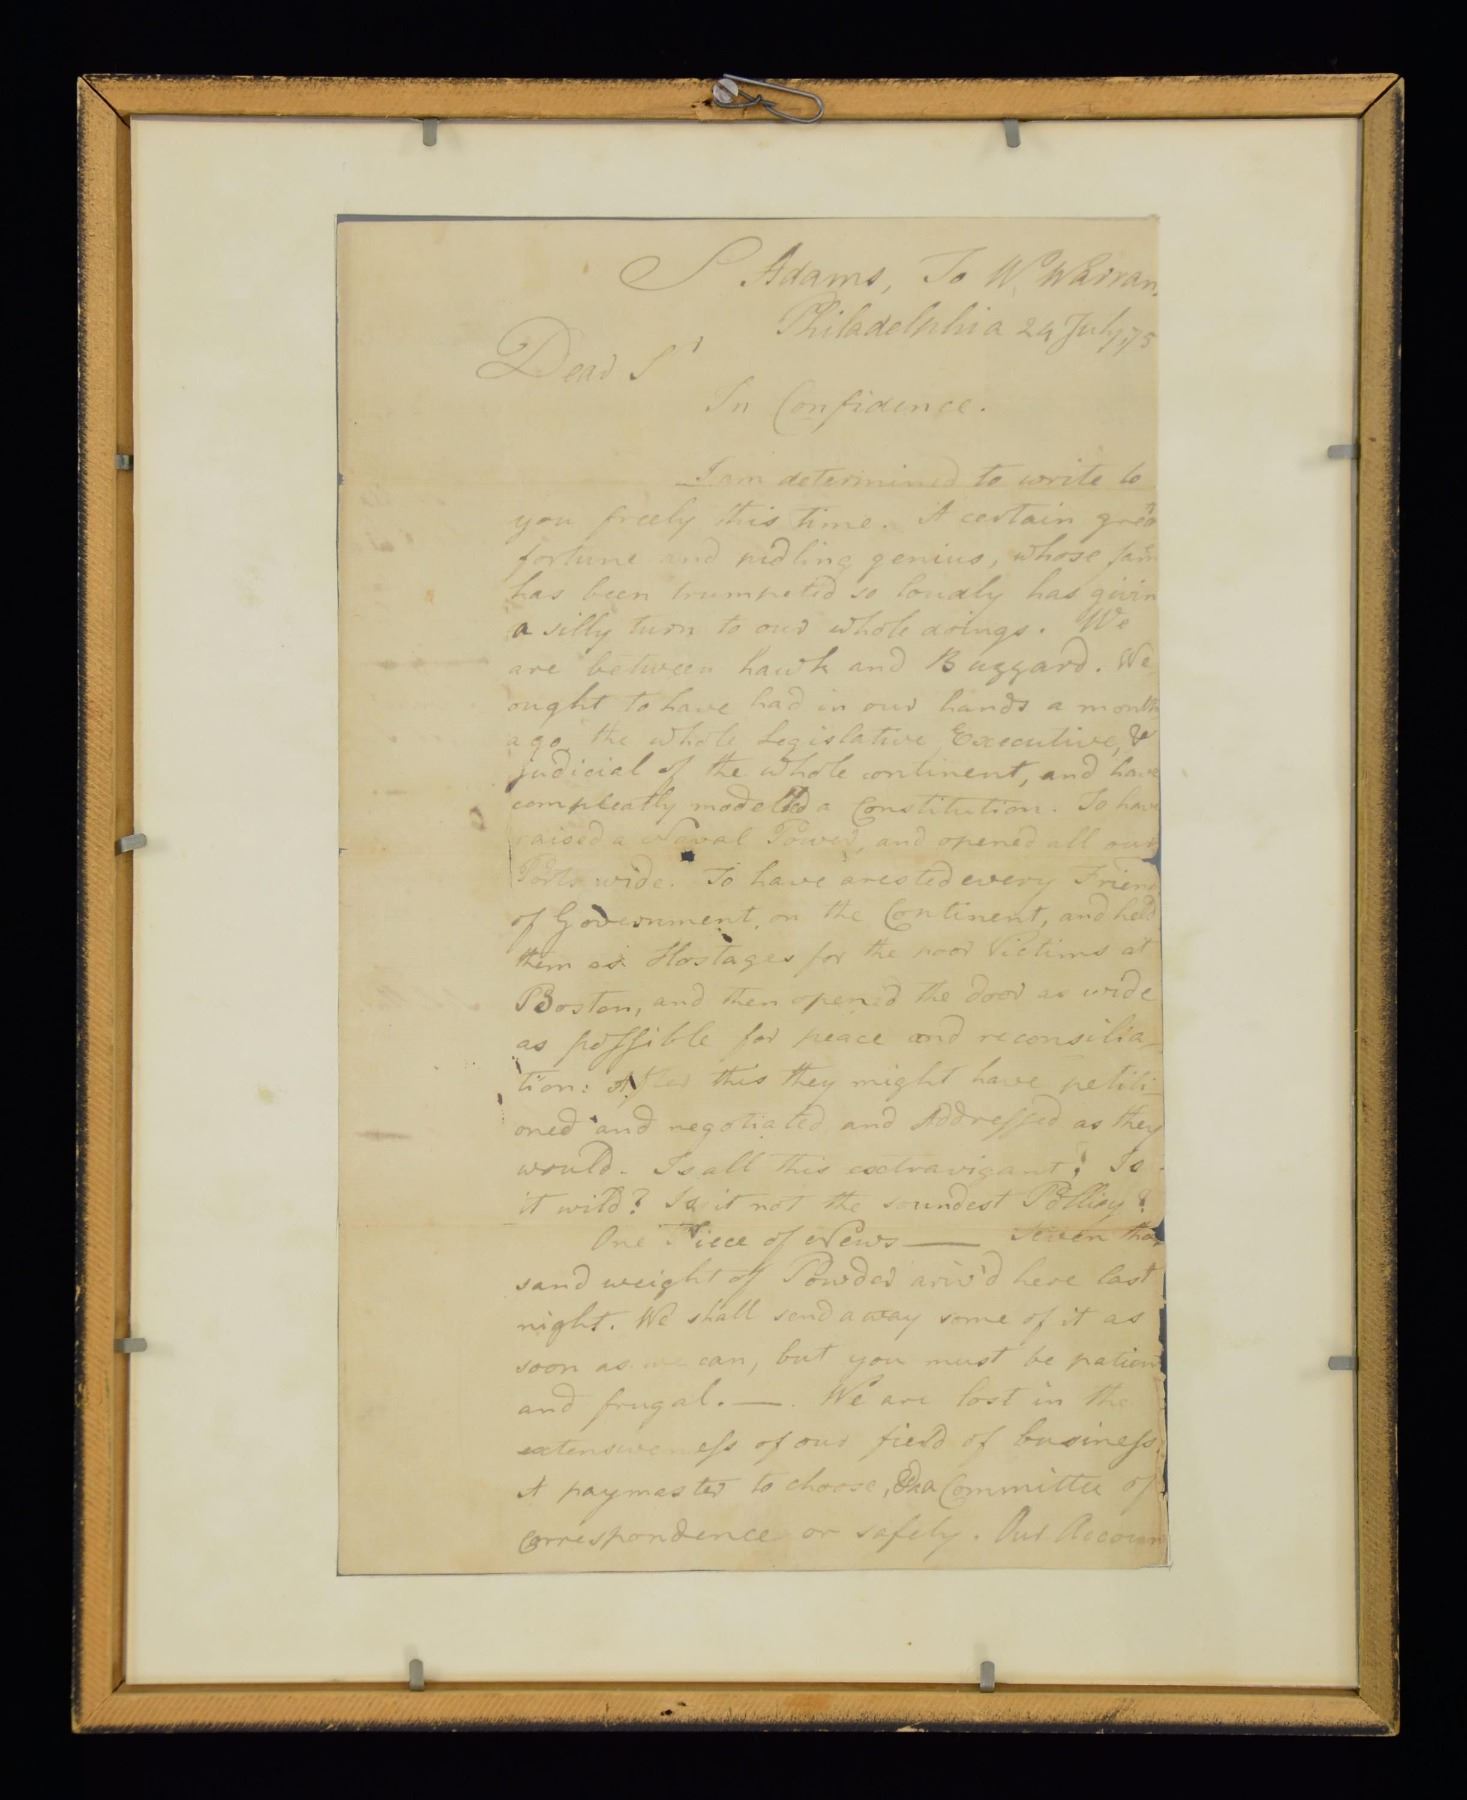 S Adams, To W. Warran.
Philadelphia 24 July, 75
Dear Sr
In Confidence.
I am determined to write to
you freely this time. A certain great
fortune and pidling genius, whose fam
has been trumpeted so loudly has givin
a silly turn to our whole doings. We
are between hawk and Buzzard. We
ought to have had in our hands a month
ago, the whole Legislative, Executive, &
judicial of the whole continent, and have
compleatly modelled a Constitution. To have
raised a Naval Power, and opened all our
Ports wide. To have arested every Friend
of Government, on the Continent, and held
them as Hostages for the poor Victims at
Boston, and then opened the door as wide
as possible for peace and reconsilia-
tion: After this they might have petiti-
oned and negotiated and Addressed as they
would. Is all this extravigant? Is
it wild? Is it not the soundest Pollicy?
One Piece of News — Seven thou
sand weight of Powder ariv'd here last
night. We shall send away some of it as
soon as we can, but you must be patien
and frugal. —. We are lost in the
extensiveness of our field of business
A paymaster to choose, a Committee of
correspondence or safety. Our Accoun